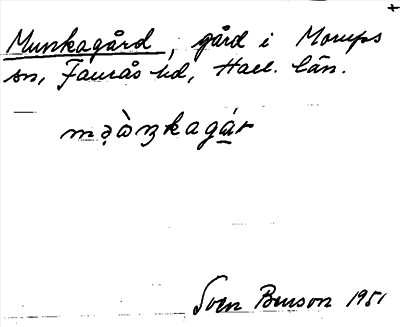 +
Munkagård, gård i Morups
sn, Faurås hd, Hall. län.
mə̣àŋkagár
Sven Benson 1951